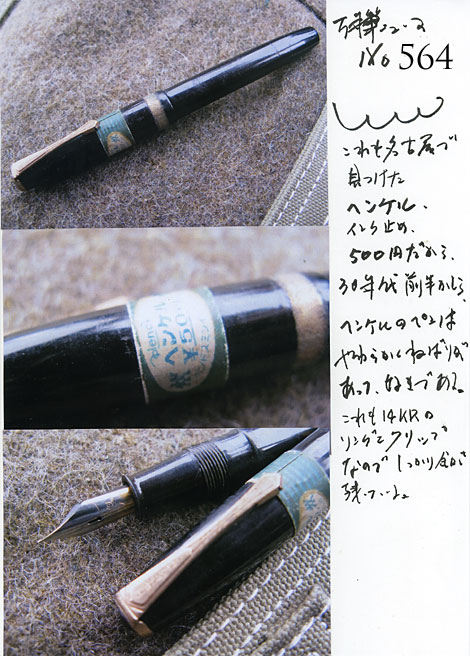 万年筆ニュース
No 564
これも名古屋で
見つけた
ヘンケル、
インク止め、
500円だから、
30年代前半かしら
ヘンケルのペンは
やわらかくねばりが
あって、好きである。
これも14KRの
リングとクリップ
なのでしっかり金が
残っている。
ヘンケル